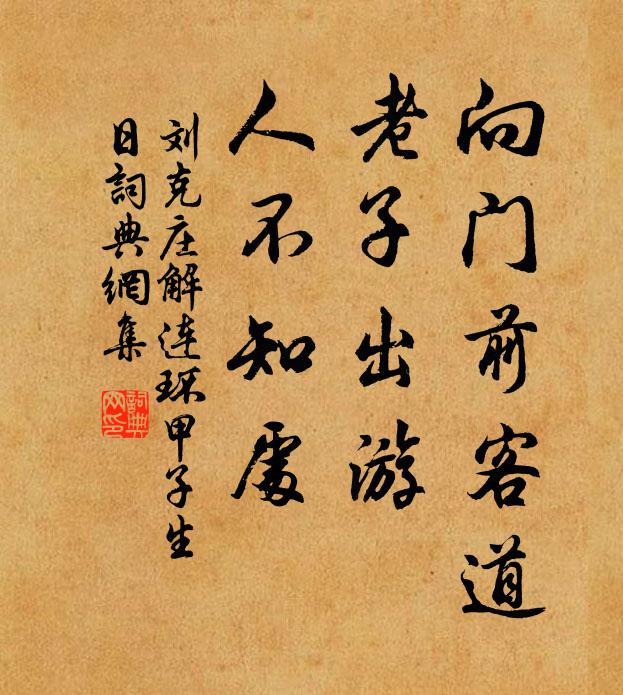 向门前客道
老子出游
人不知處
刘克庄解连环甲子生
日詞典網集
詞典
网印